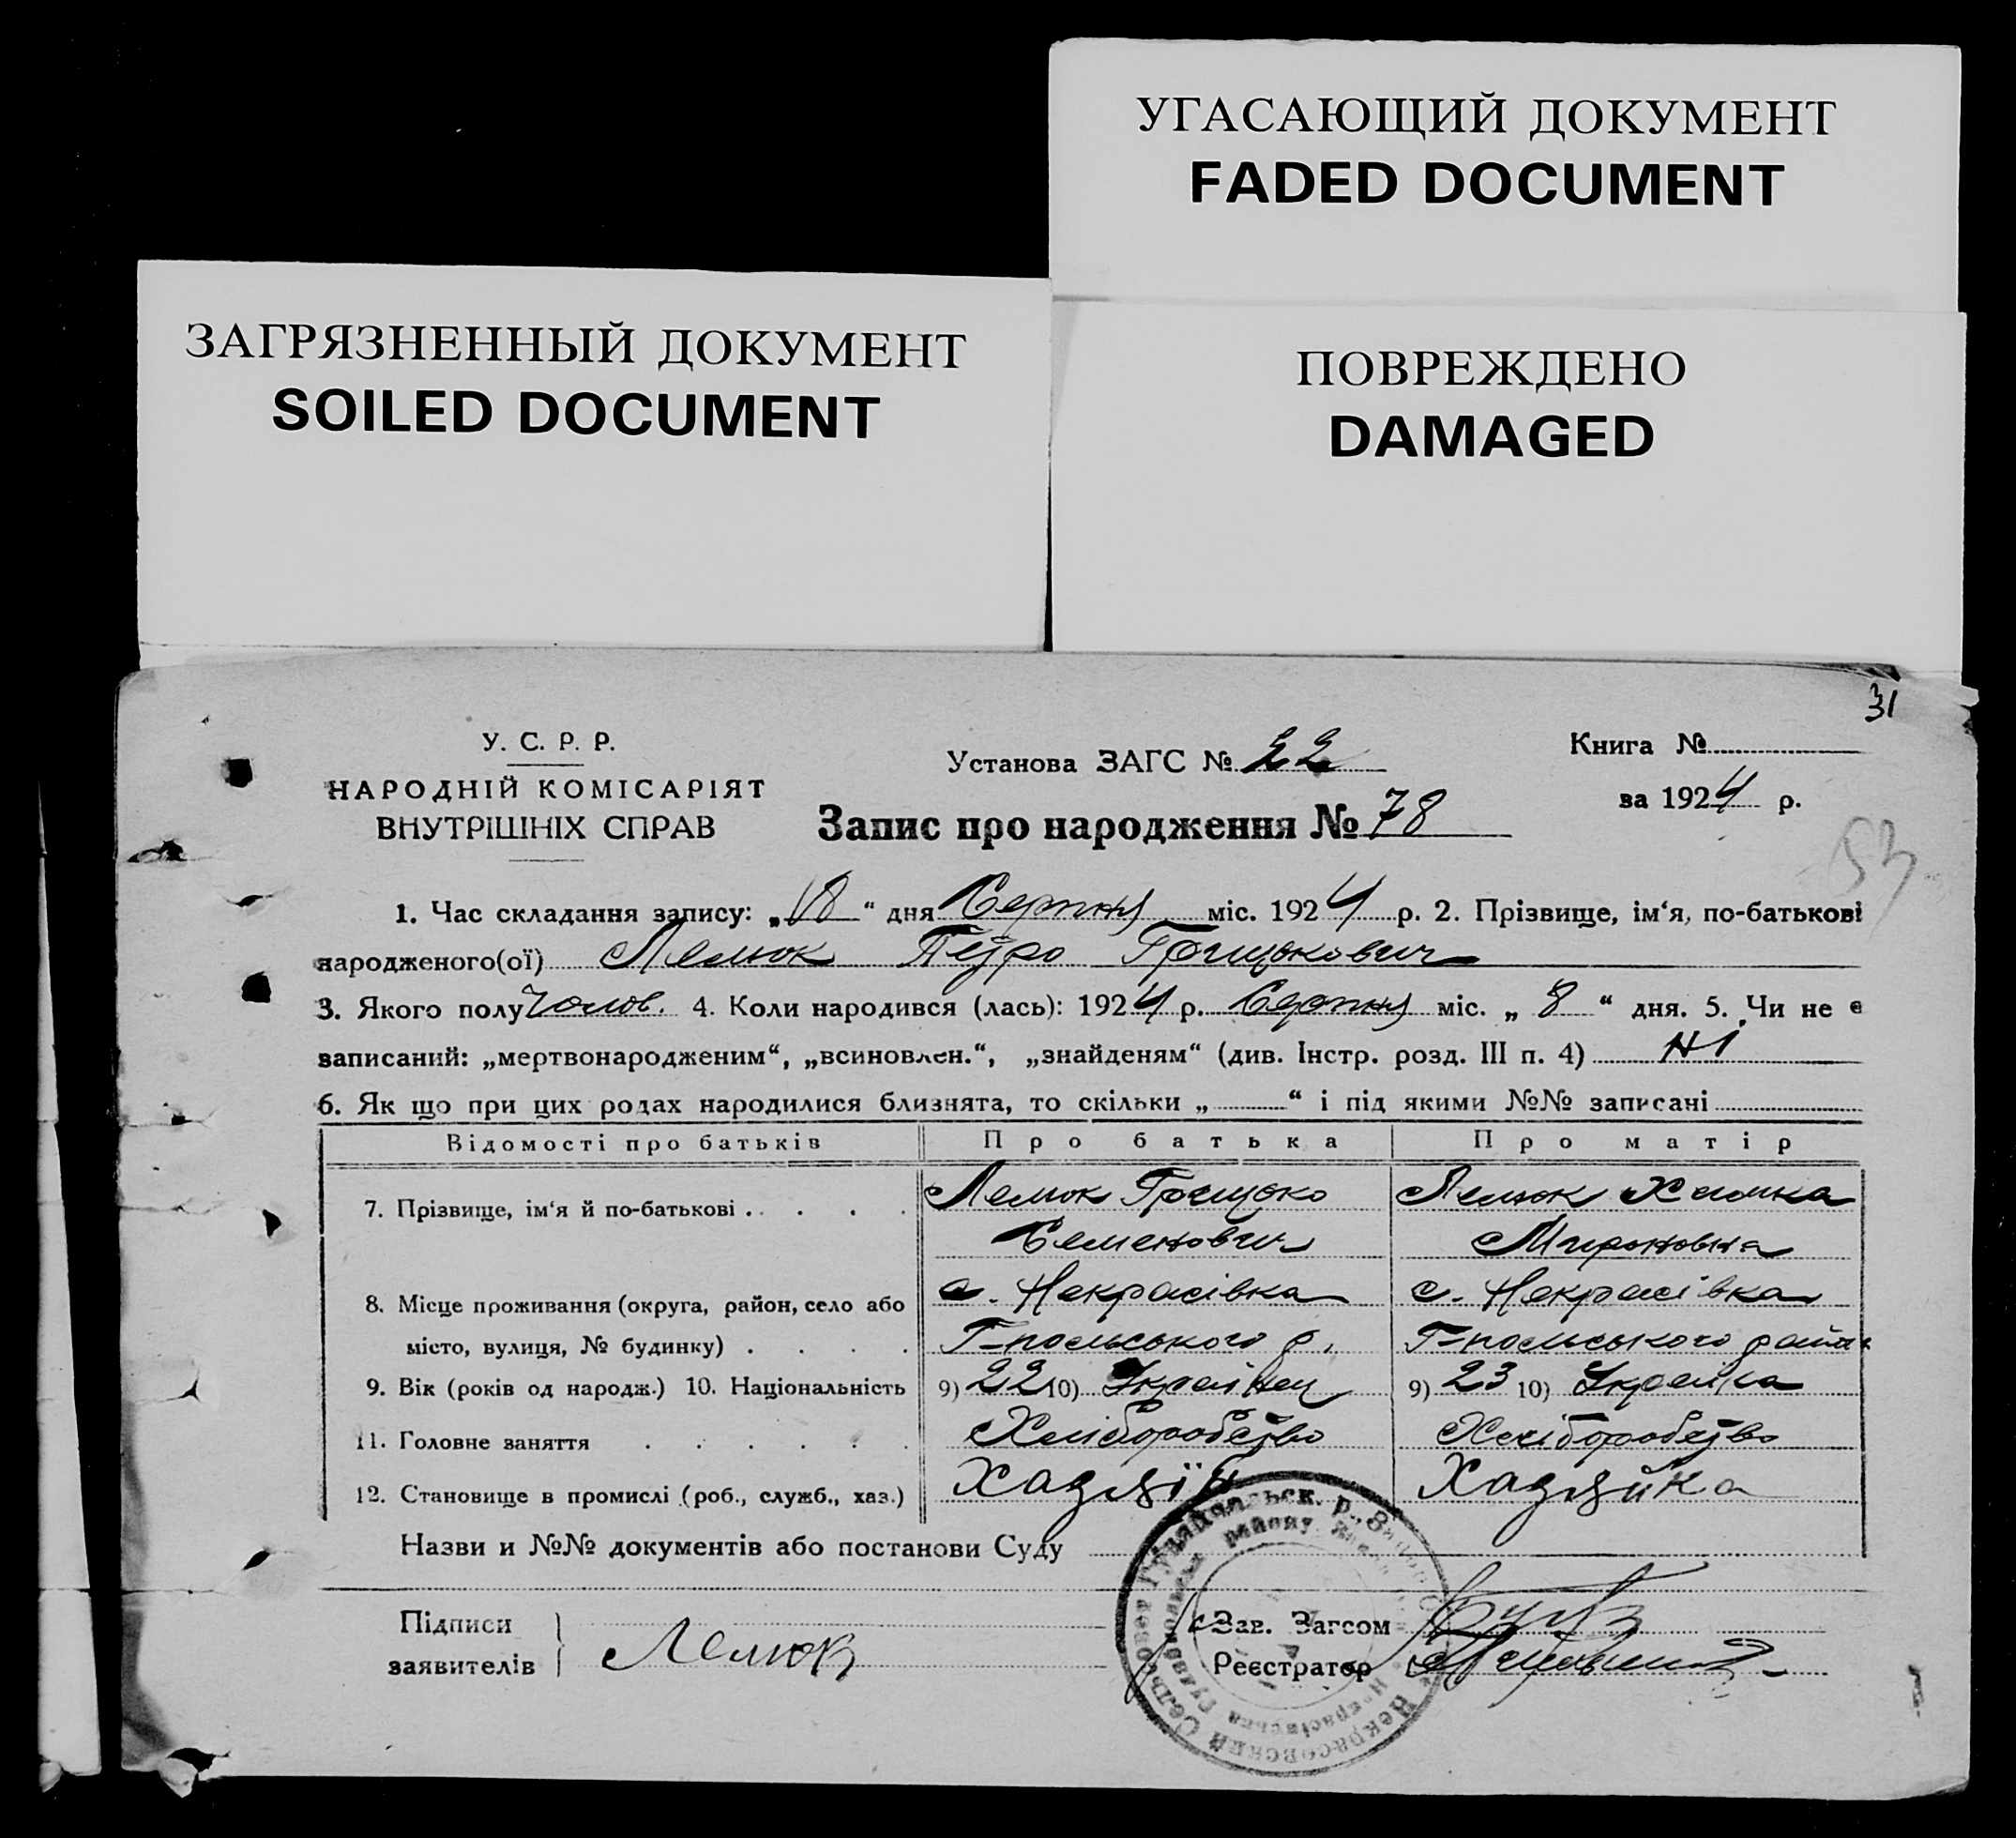 УГАСАЮЩИЙ ДОКУМЕНТ
FADED DOCUMENT
ЗАГРЯЗНЕННЫЙ ДОКУМЕНТ
SOILED DOCUMENT
ПОВРЕЖДЕНО
DAMAGED
31
У. С. Р. Р.
НАРОДНІЙ КОМІСАРІЯТ
ВНУТРІШНІХ СПРАВ
Установа ЗАГС № 22
Запис про народження № 78
Книга №
за 1924 р.
53
1. Час складання запису: „18“ дня Серпня міс. 1924 р. 2. Прізвище, ім‘я, по-батькові
народженого(ої) Лемюк Петро Грицькович
3. Якого полу Чолов. 4. Коли народився (лась): 1924 р. Серпня міс. „8“ дня. 5. Чи не є
записаний: „мертвонародженим“, „всиновлен.“, „знайденям“ (див. Інстр. розд. III п. 4) Ні
6. Як що при цих родах народилися близнята, то скільки „ “ і під якими №№ записані
Відомості про батьків Про батька Про матір
7. Прізвище, ім‘я й по-батькові Лемюк Грицько Лемюк Химка
Семенович Мироновна
8. Місце проживання (округа, район, село або с. Некрасівка с. Некрасівка
місто, вулиця, № будинку) Г-польського р. Г-польського
9. Вік (років од народж.) 10. Національність 9) 22 10) Українец 9) 23 10) Українка
11. Головне заняття Хліборобство Хліборобство
12. Становище в промислі (роб., служб., хаз.) Хазяїн Хазяйка
Назви и №№ документів або постанови Суду
Підписи
заявителів Лемюк
Зав. Загсом
Реєстратор
Некрасовский Сельсовет Гущайпольск. р.,